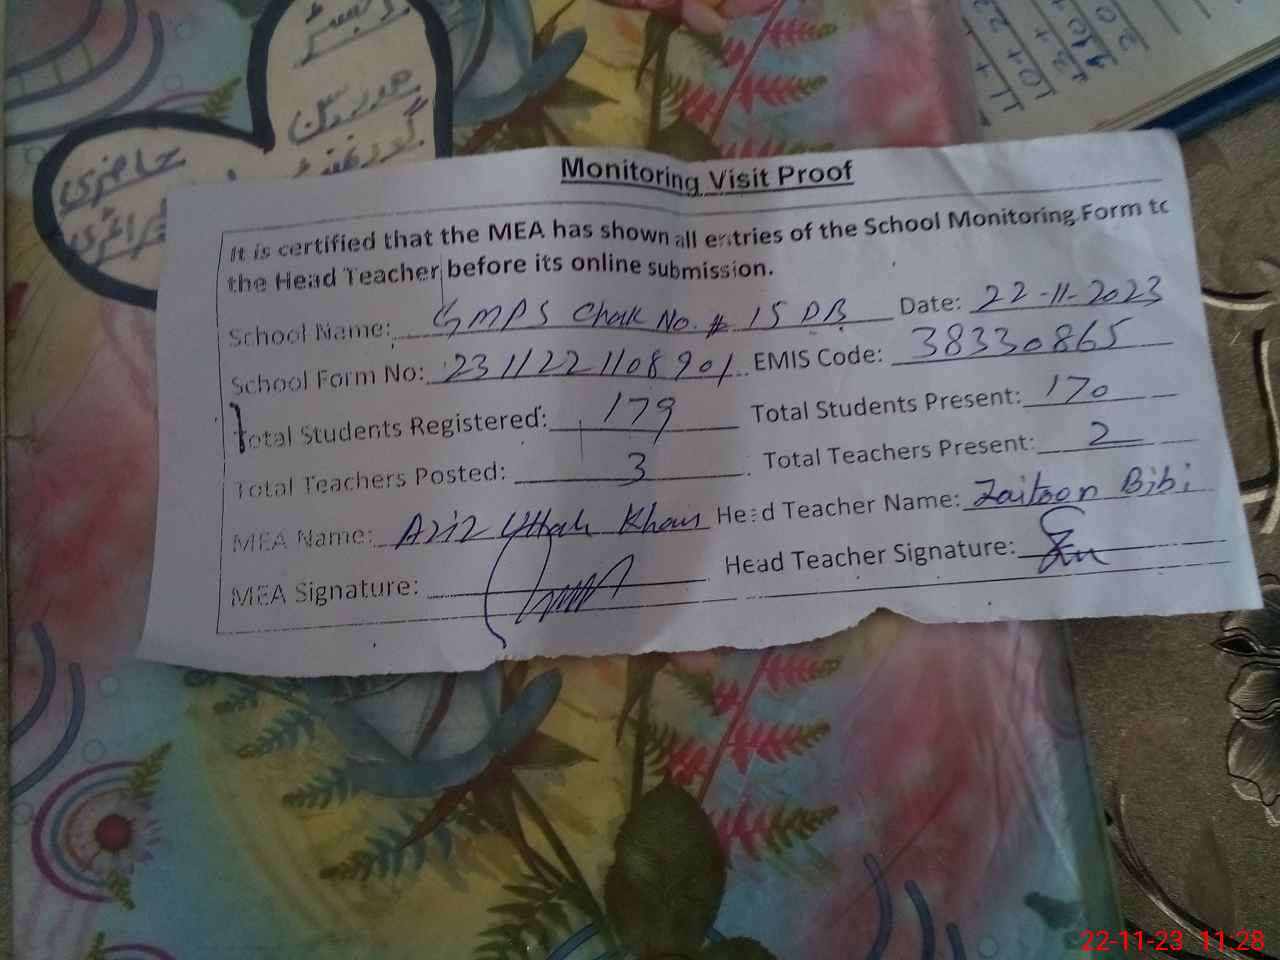 حاضری
Monitoring Visit Proof
It is certified that the MEA has shown all entries of the School Monitoring Form to
the Head Teacher before its online submission.
School Name: GMPS Chak No. 15 DB Date: 22-11-2023
School Form No: 231122 1108901 EMIS Code: 38330865
Total Students Registered: 179 Total Students Present: 170
Total Teachers Posted: 3 Total Teachers Present: 2
MEA Name: Aziz Ullah Khan Head Teacher Name: Zaitoon Bibi
MEA Signature: Head Teacher Signature:
22-11-23 11:28